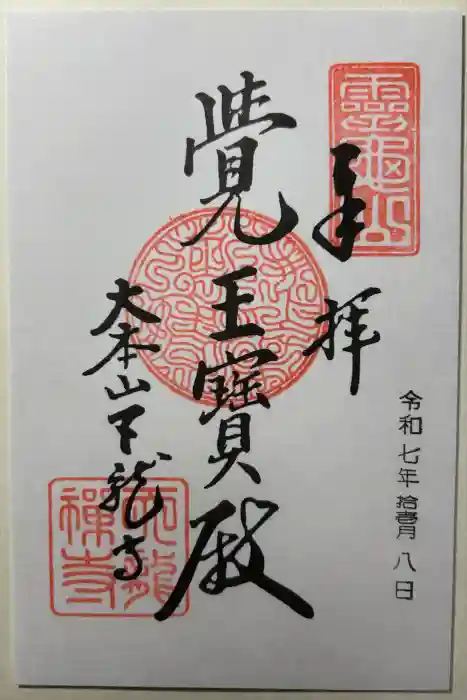 靈龜山
奉拝
令和七年拾壹月八日
覺王寶殿
大本山天龍寺
天龍
禪寺